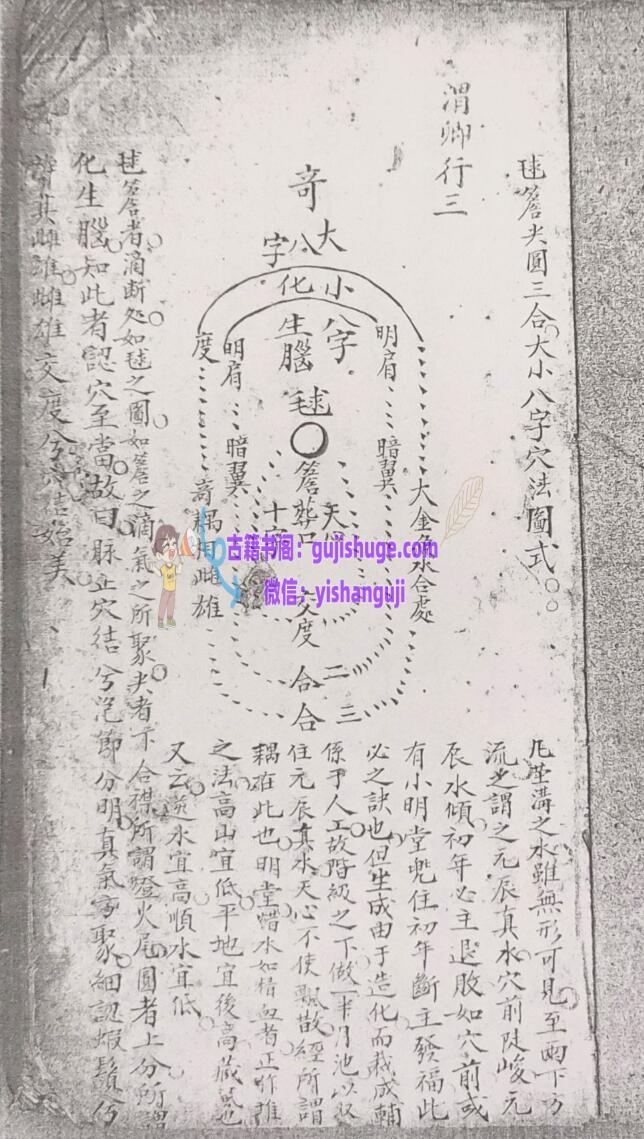 毬簷尖圓三合大小八字穴法圖式
渭卿行三
奇
大八字
小八字
化生腦
毬
簷
葬口
天心
十字
交度
二合
三合
明肩
暗翼
明肩
暗翼
度
奇耦相雌雄
大金魚水合處
凡茔溝之水雖無形可見至雨下方
流也謂之元辰真水穴前陡峻元
辰水傾初年必主退敗如穴前或
有小明堂兜住初年斷主發福此
必之訣也但生成由于造化而裁成輔
係于人工故階級之下做一半月池以收
住元辰真水天心不使飄散經所謂
耦在此也明堂惜水如惜血者正
之法高山宜低平地宜後高藏風也
又云逆水宜高順水宜低
毬簷者滴斷処如毬之圓如簷之滴氣之所聚尖者下合襟所謂燈火尾圓者上分所謂
化生腦知此者認穴至當故曰脉止穴結兮節分明真氣聚細認蝦鬚兮
其雌雄雌雄交度兮穴結始美
古籍书阁：gujishuge.com
微信：yishanguji